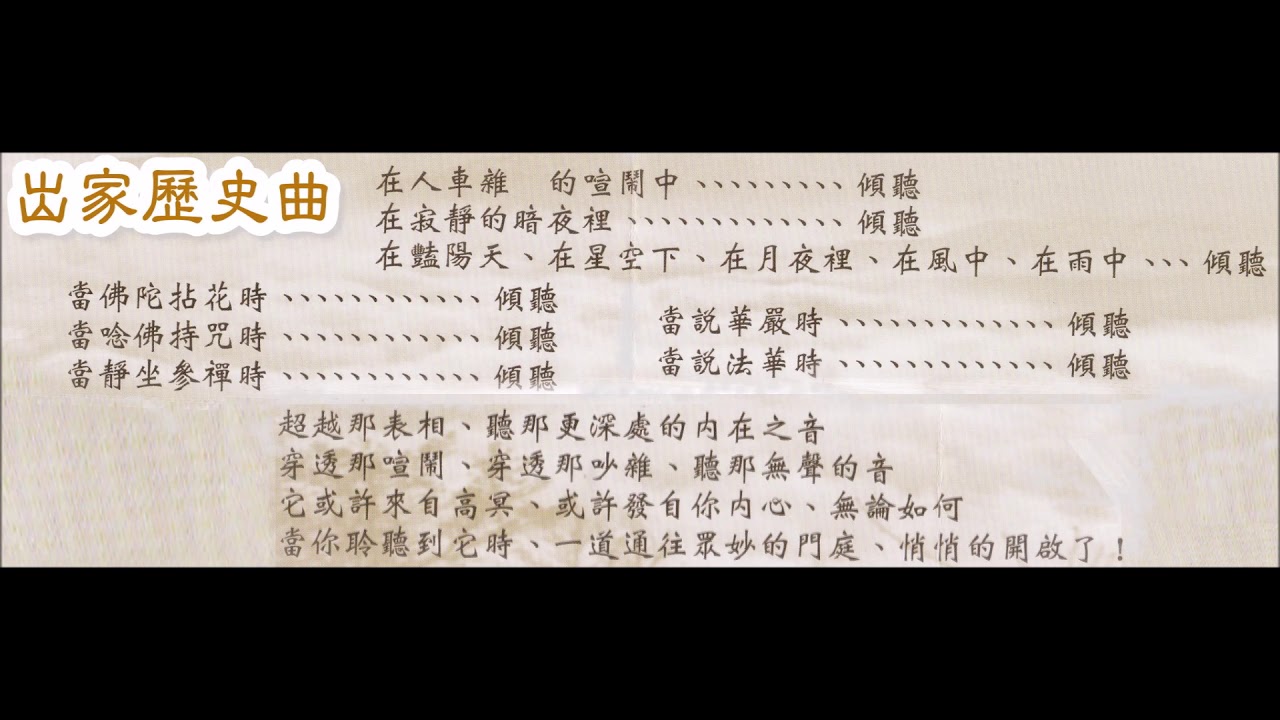 出家歷史曲
在人車雜　的喧鬧中、、、、、、、、、傾聽
在寂靜的暗夜裡、、、、、、、、、、、、、傾聽
在豔陽天、在星空下、在月夜裡、在風中、在雨中、、、傾聽
當佛陀拈花時、、、、、、、、、、、、傾聽
當唸佛持咒時、、、、、、、、、、、、傾聽
當靜坐參禪時、、、、、、、、、、、、傾聽
當説華嚴時、、、、、、、、、、、、、傾聽
當説法華時、、、、、、、、、、、、、傾聽
超越那表相、聽那更深處的内在之音
穿透那喧鬧、穿透那吵雜、聽那無聲的音
它或許來自高冥、或許發自你内心、無論如何
當你聆聽到它時、一道通往眾妙的門庭、悄悄的開啟了！